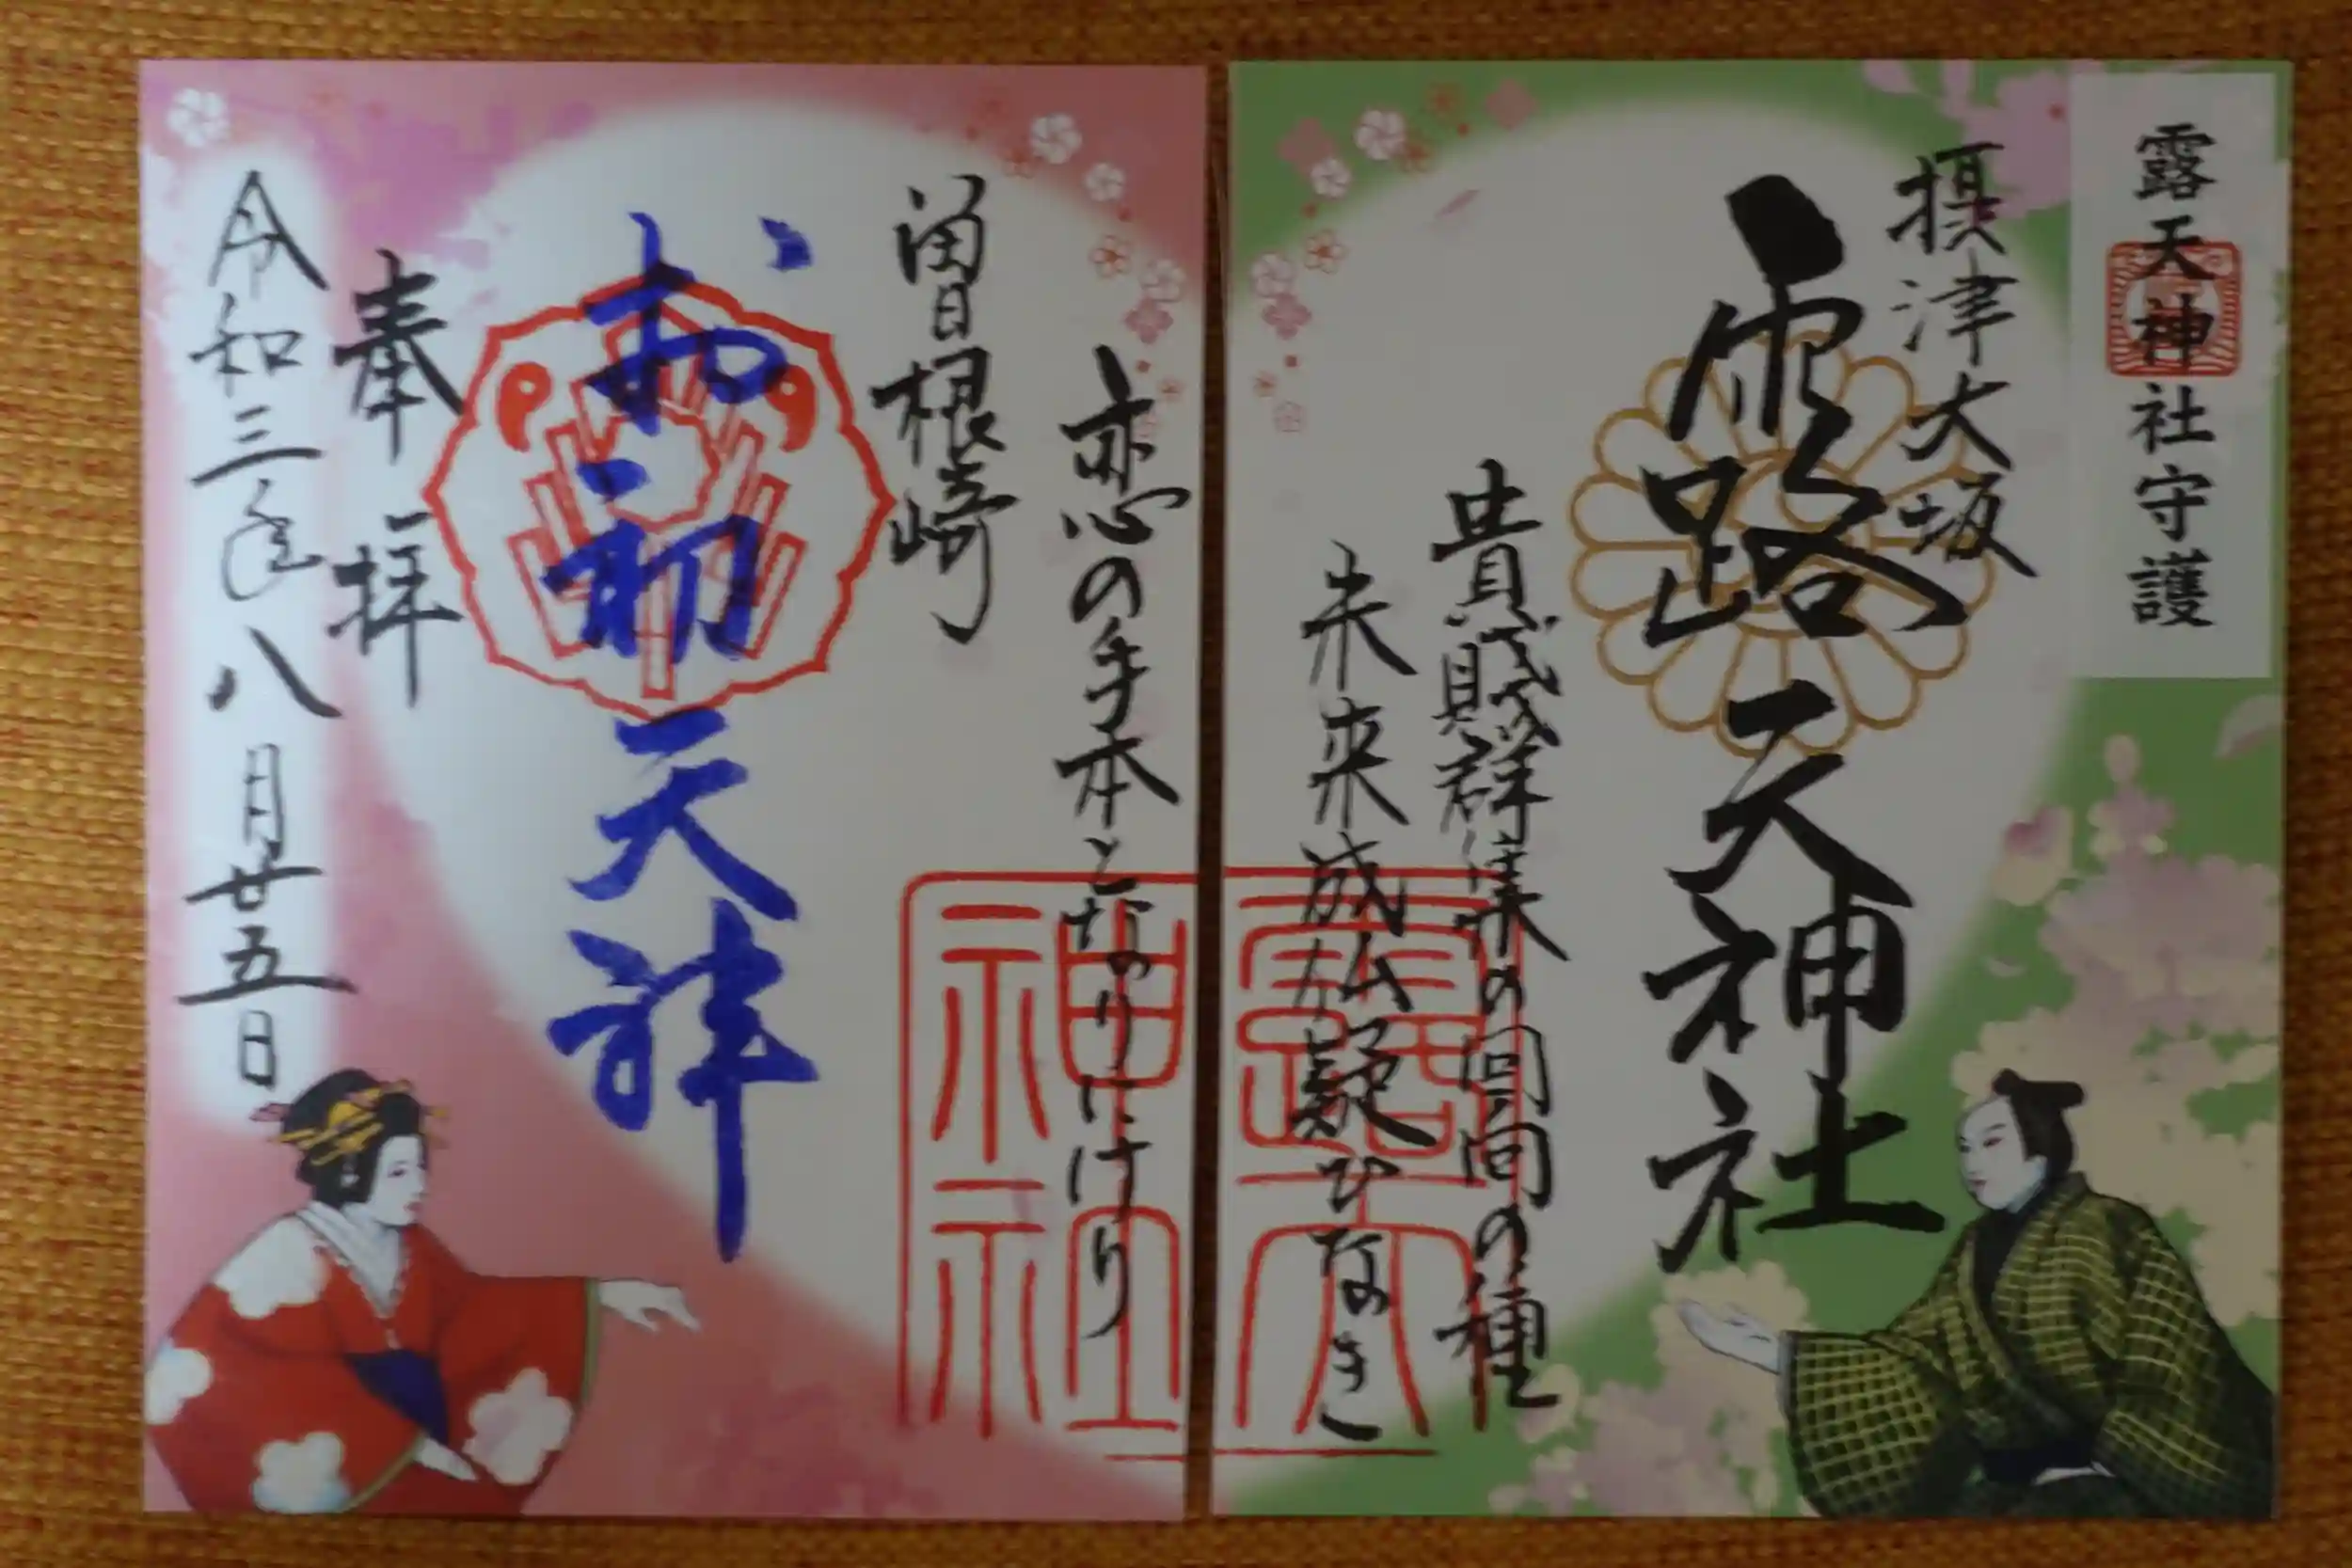 露天神社守護
摂津大坂
露天神社
貴賤群集の回向の種
未来成仏疑ひなき
恋の手本となりにけり
曽根崎
お初天神
奉拝
令和三年八月廿五日
露天
神社